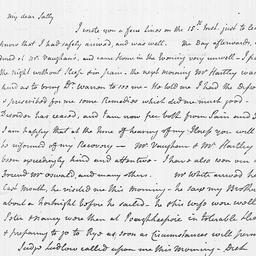 My dear Sally
I wrote you a few lines on the 15th Inst. just to let
know that I had safely arrived, and was well. The Day afterwards,
dined at Mr. Vaughan's, and came home in the Evening very unwell - I
the night without Sleep & in pain. the next morning Mr Hartley was
kind as to bring Dr. Warren to see me - He told me I had the
& prescribed for me some Remedies which did me much good -
Disorder has ceased, and I am now free both from Pain and
I am happy that at the Time of hearing of my Illness you will
be informed of my Recovery - Mr Vaughan & Mr Hartley
been exceedingly kind and attentive - I have also seen our
Friend Mr Oswald, and many others. Mr White arrived he
last Month, he visited me this Morning - he saw my Brother
about a fortnight before he sailed - he & his wife were well
Peter & Nancy were then at Poughkeepsie in tolerable Heal
& preparing to go to Rye as soon as Circumstances will perm
Judge Ludlow called upon me this Morning -